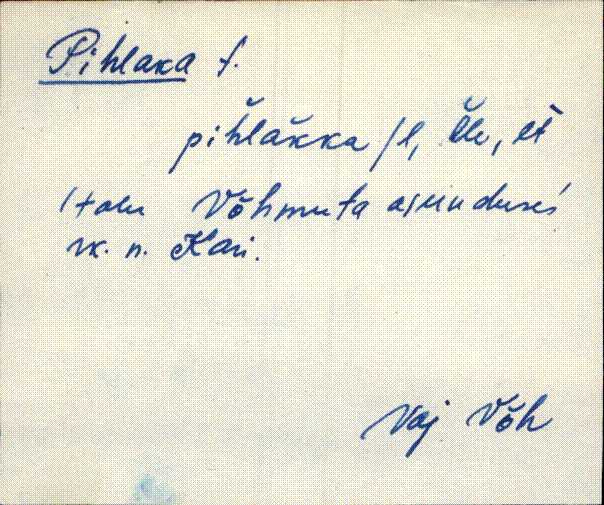 Pihlaka t.
pih̆lăkka /l, l̆le, lt
talu Võhmuta asunduses
rk. n. Kari.
VJg Võh